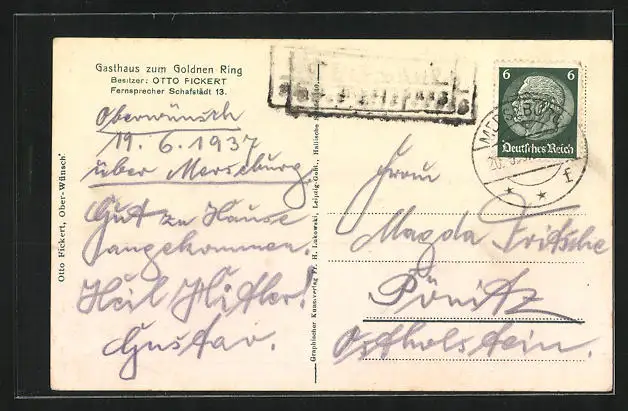 Gasthaus zum Goldnen Ring
Besitzer: OTTO FICKERT
Fernsprecher Schafstädt 13.
Oberwünsch
19.6.1937
über Merseburg.
Gut zu Hause
angekommen.
Heil Hitler!
Gustav.
Otto Fickert, Ober-Wünsch
Graphischer Kunstverlag Fr. H. Lukowski, Leipzig-Goh., Hallische
6 6
Deutsches Reich
MERSEBURG
f
Frau
Magda Fritsche
Pönitz
Ostholstein.